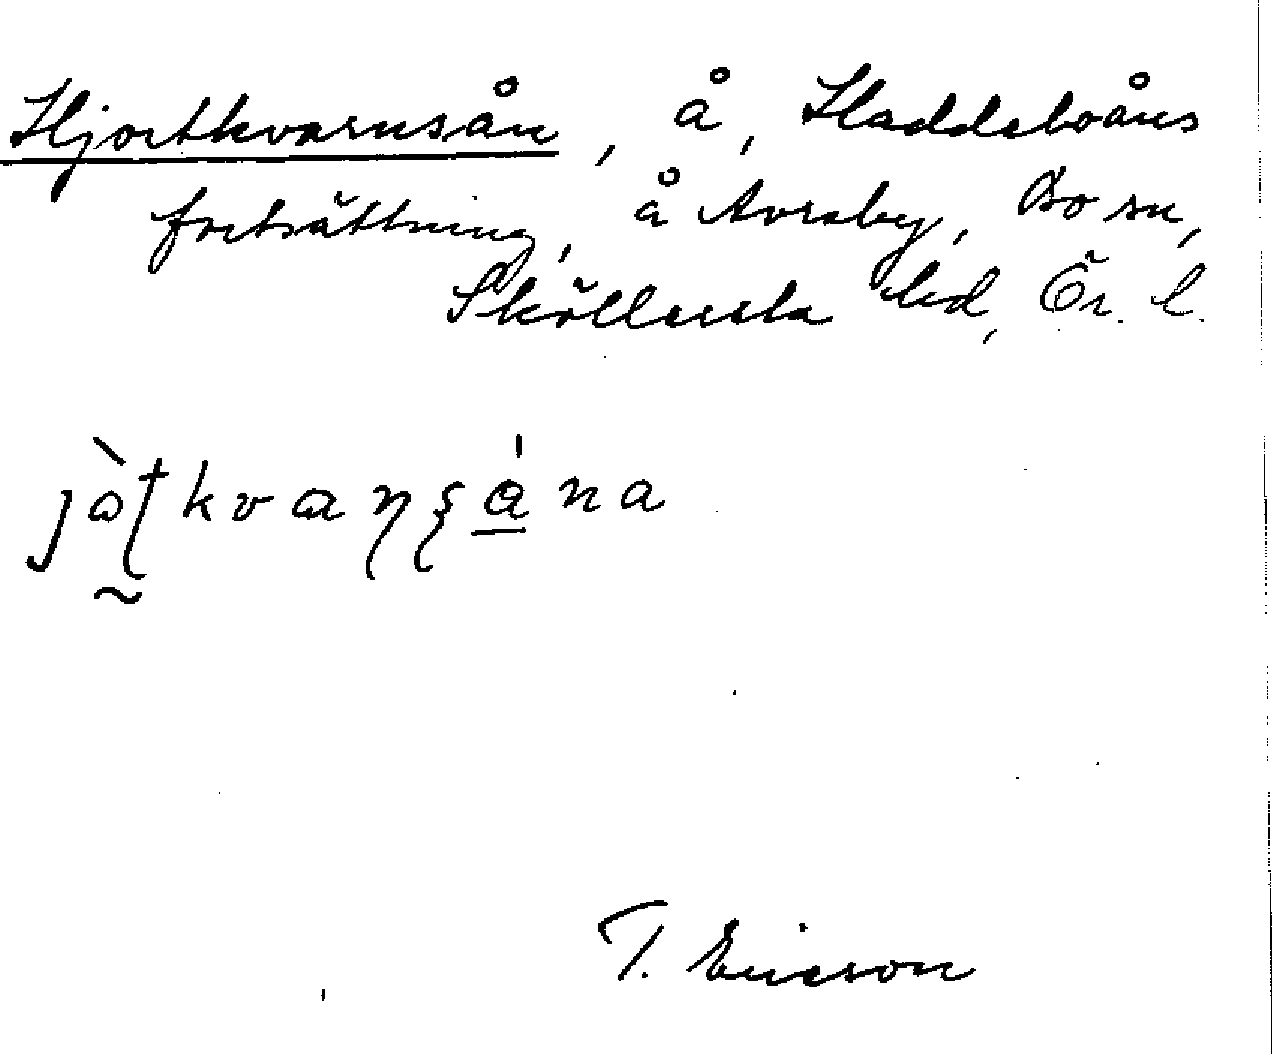 Hjortkvarnsån, å, Haddeboåns
fortsättning, å Avraby, Bo sn,
Sköllersta hd, Ör. l.
T. Ericson